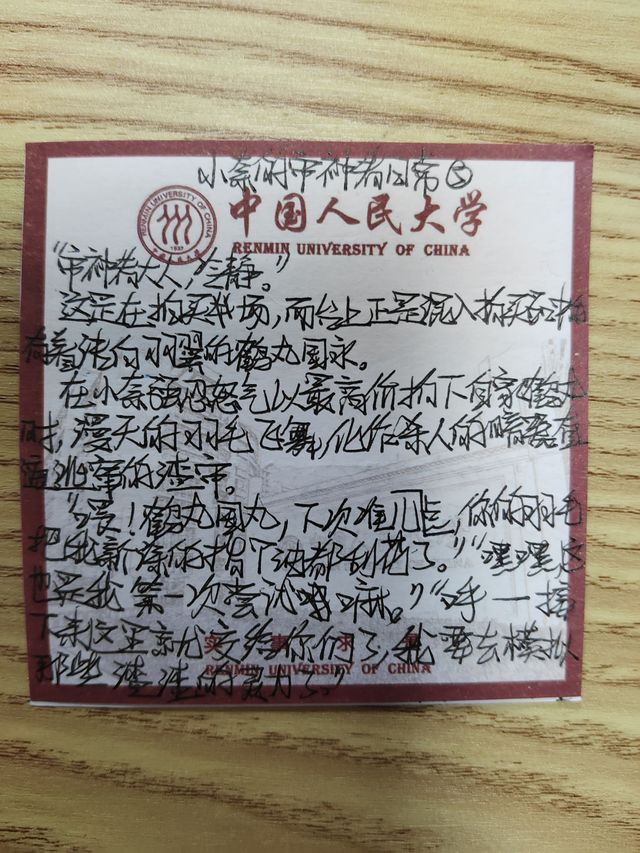 小奈的审神者日常⑤
RENMIN UNIVERSITY OF CHINA
1937
中国人民大学
RENMIN UNIVERSITY OF CHINA
“审神者大人,冷静。”
这是在拍卖现场,而台上正是混入拍卖
有着洁白羽翼的鹤丸国永。
在小奈强忍怒气以最高价拍下自家鹤丸
时,漫天的羽毛飞舞,化作杀人的暗器直
逼 的
“喂!鹤丸国丸,下次准点,你的羽毛
把我新涂的指甲油都刮花了。”“嘿嘿,这
也是我第一次尝试嘛。”“手一挥
下来这里就交给你们了,我要去模拟
那些 的
实事求是
RENMIN UNIVERSITY OF CHINA